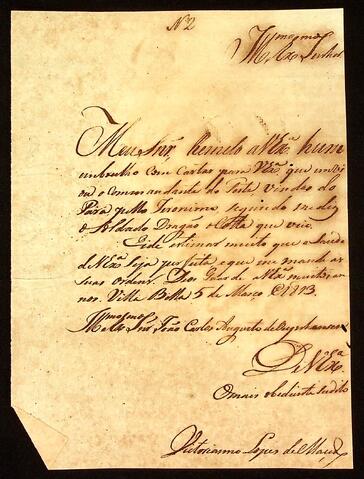 N 2
Illmo e Exmo Senhor
Meu Snr. Remeto a VExa hum
embrulho com Cartas para VExa que
o comandante do vindas do
Pará pello Jeronimo, segundo me diz
o Soldado Dragão e Costa que veio.
estimar muito que a saude
de VExa seja e que me mande as
suas ordens. Deos Gde a VExa muitos an
nos. Villa Bella 5 de Março 1813.
Illmo e Exmo Snr João Carlos Augusto de Oeynhausen
De VExa
O mais obediente Subdito
Victorianno Lopes de